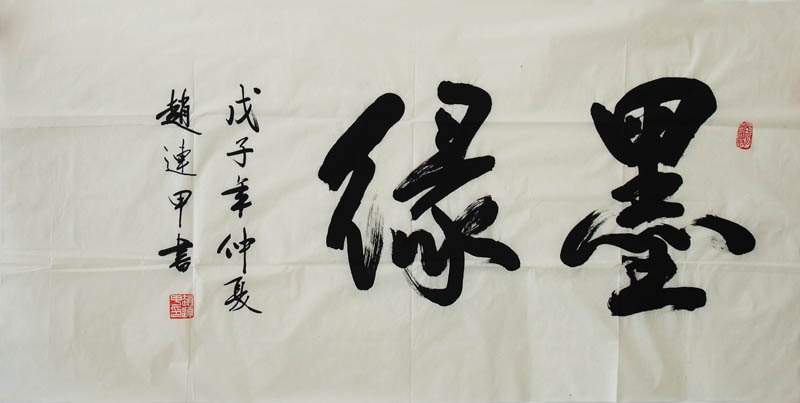 墨緣
戊子年仲夏
趙連甲書